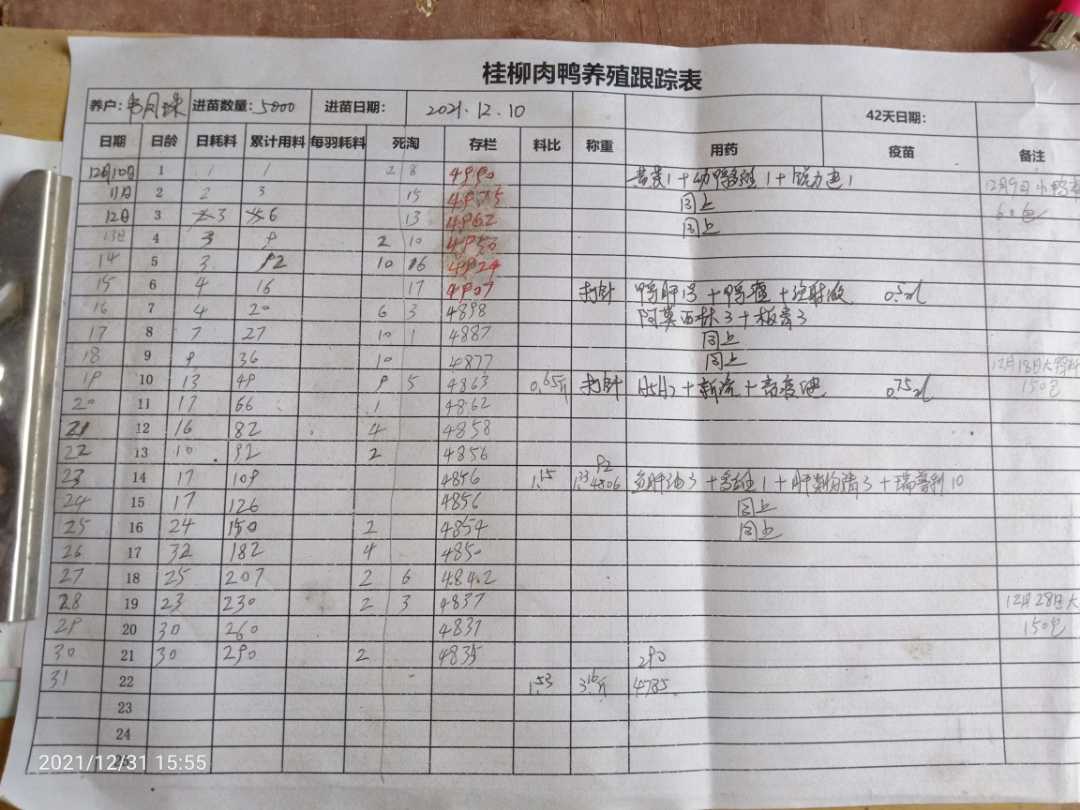 桂柳肉鸭养殖跟踪表
养户: 月球 进苗数量: 5000 进苗日期: 2021.12.10 42天日期:
日期 日龄 日耗料 累计用料 每羽耗料 死淘 存栏 料比 称重 用药 疫苗 备注
12月10日 1 1 1 2 8 4990 1+ 1+ 1
11日 2 2 3 15 4975 同上 12月9日小鸭
12日 3 3 6 13 4962 同上
13日 4 3 9 2 10 4950
14 5 3 12 10 16 4924
15 6 4 16 17 4907 打针 鸭肝 + 鸭瘟 + 注射 0.5ml
16 7 4 20 6 3 4898 阿莫西林3+板青3
17 8 7 27 10 1 4887 同上
18 9 9 36 10 4877 同上 12月18日大鸭
19 10 13 49 9 5 4863 0.65斤 打针 H5H7+新流+ 0.75ml 150包
20 11 17 66 1 4862
21 12 16 82 4 4858
22 13 10 92 2 4856
23 14 17 109 4856 1.15 1.33 4806 92 鱼肝油3+ 1+肝 3+瑞 10
24 15 17 126 4856 同上
25 16 24 150 2 4854 同上
26 17 32 182 4 4850
27 18 25 207 2 6 4842
28 19 23 230 2 3 4837 12月28日大
29 20 30 260 4837 150包
30 21 30 290 2 4835 290
31 22 1.53 3.16斤 4785
23
24
2021/12/31 15:55